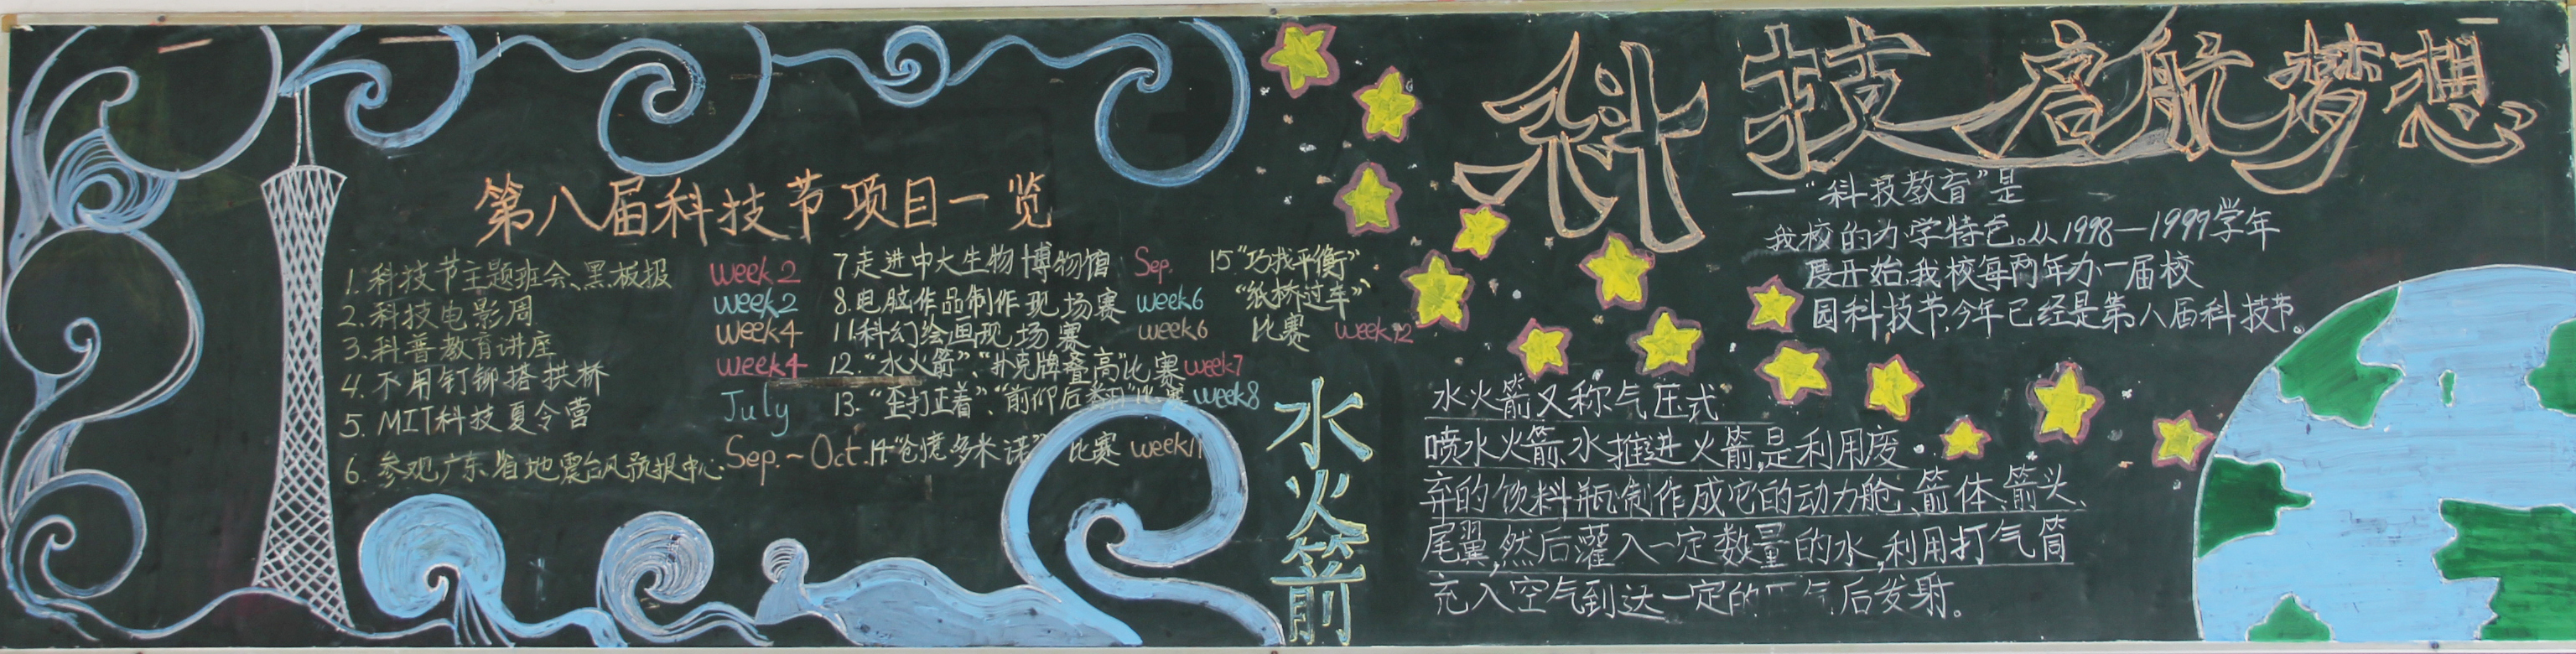 科技启航梦想
——“科技教育”是
我校的办学特色。从1998—1999学年
度开始,我校每两年办一届校
园科技节,今年已经是第八届科技节。
第八届科技节项目一览
1.科技节主题班会、黑板报 week2
2.科技电影周 week2
3.科普教育讲座 week4
4.不用钉铆搭拱桥 week4
5.MIT科技夏令营 July
6.参观广东省地震台风预报中心 Sep.~Oct.
7走进中大生物博物馆 Sep.
8.电脑作品制作现场赛 week6
11科幻绘画现场赛 week6
12.“水火箭”、“扑克牌叠高”比赛 week7
13.“歪打正着”、“前仰后翻”比赛 week8
14“仓惶多米诺” 比赛 week11
15“巧找平衡”
“纸桥过车”
比赛 week12
水火箭
水火箭又称气压式
喷水火箭、水推进火箭,是利用废
弃的饮料瓶制作成它的动力舱、箭体、箭头、
尾翼,然后灌入一定数量的水,利用打气筒
充入空气到达一定的 气后发射。